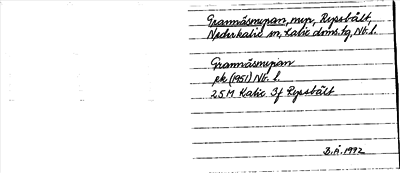 Grannäsnypan, nyp, Rypsbält,
Nederkalix sn, Kalix doms.tg, Nb. l.
Grannäsnypan
pk (1951) Nb. l.
25M Kalix 3f Rypsbält
B.Å. 1992